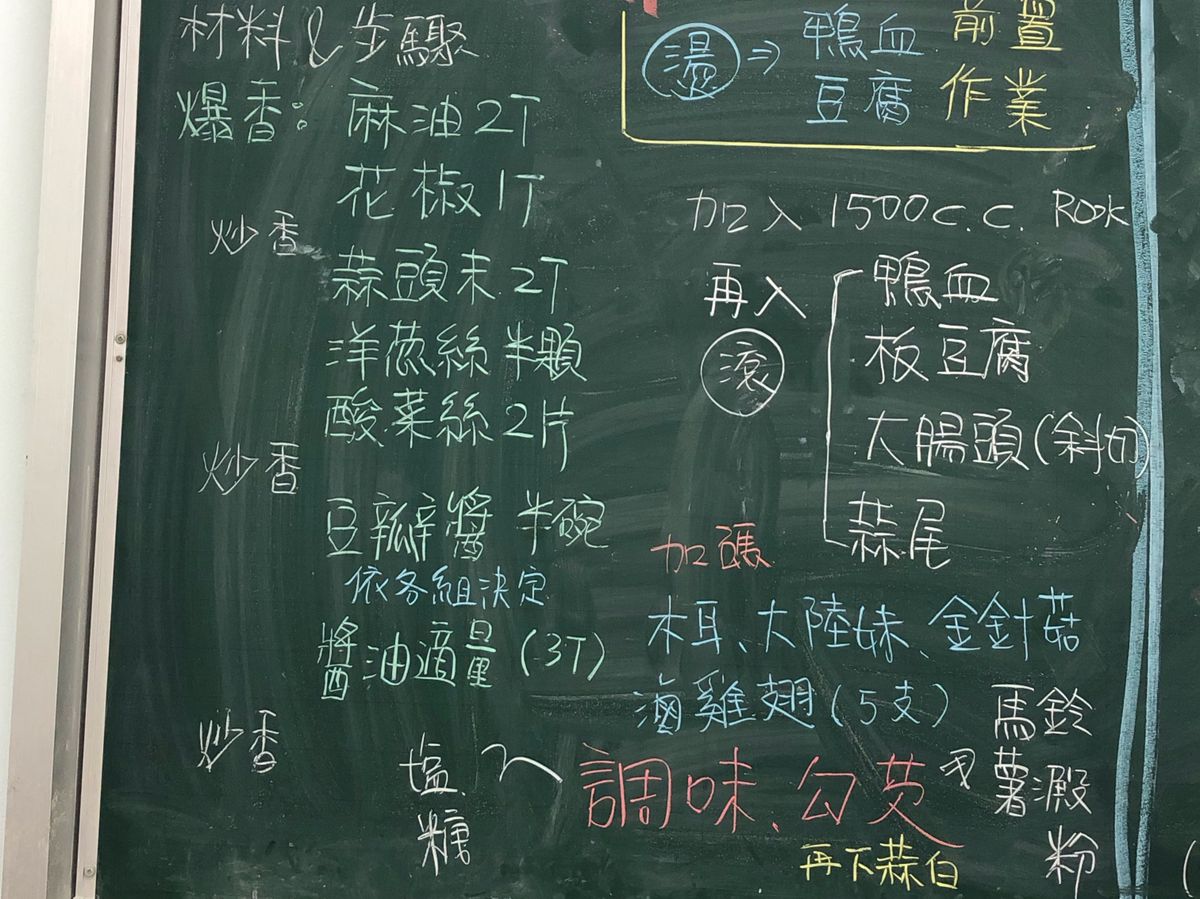 材料&步驟
爆香：麻油2T
花椒1T
炒香
蒜頭末2T
洋蔥絲半顆
酸菜絲2片
炒香
豆瓣醬半碗
依各組決定
醬油適量(3T)
炒香
塩、
糖
燙⇒鴨血
豆腐
前置
作業
加入1500c.c. RO水
再入
滾
鴨血
板豆腐
大腸頭(斜切)
蒜尾
加碼
木耳、大陸妹、金針菇
滷雞翅(5支)
調味、勾芡
馬鈴
薯澱
粉
再下蒜白